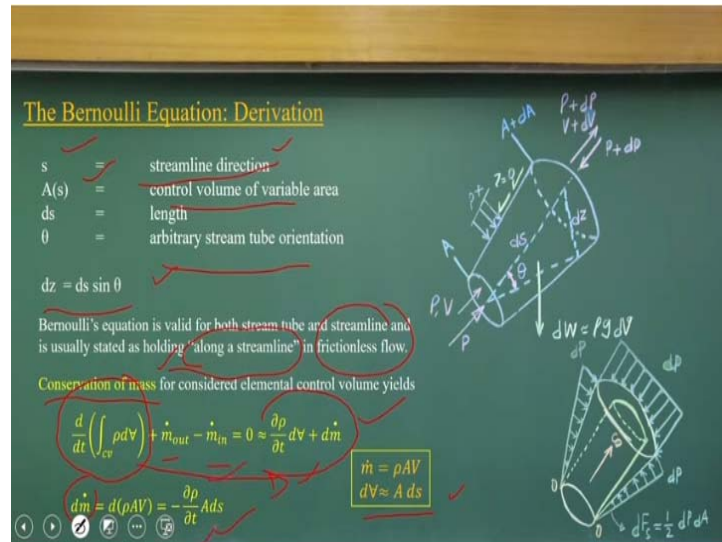 The Bernoulli Equation: Derivation
s = streamline direction
A(s) = control volume of variable area
ds = length
θ = arbitrary stream tube orientation
dz = ds sin θ
Bernoulli's equation is valid for both stream tube and streamline and
is usually stated as holding "along a streamline" in frictionless flow.
Conservation of mass for considered elemental control volume yields
d/dt (∫cv ρd∀) + ṁout − ṁin = 0 ≈ ∂ρ/∂t d∀ + dṁ
dṁ = d(ρAV) = −∂ρ/∂t Ads
ṁ = ρAV
d∀ ≈ A ds
A+dA
P+dP
V+dV
P+dP
τ=0
A
ds
dz
θ
P,V
P
dW ≈ ρg d∀
dP
dP
dP
S
0
0
dFs = 1/2 dP dA